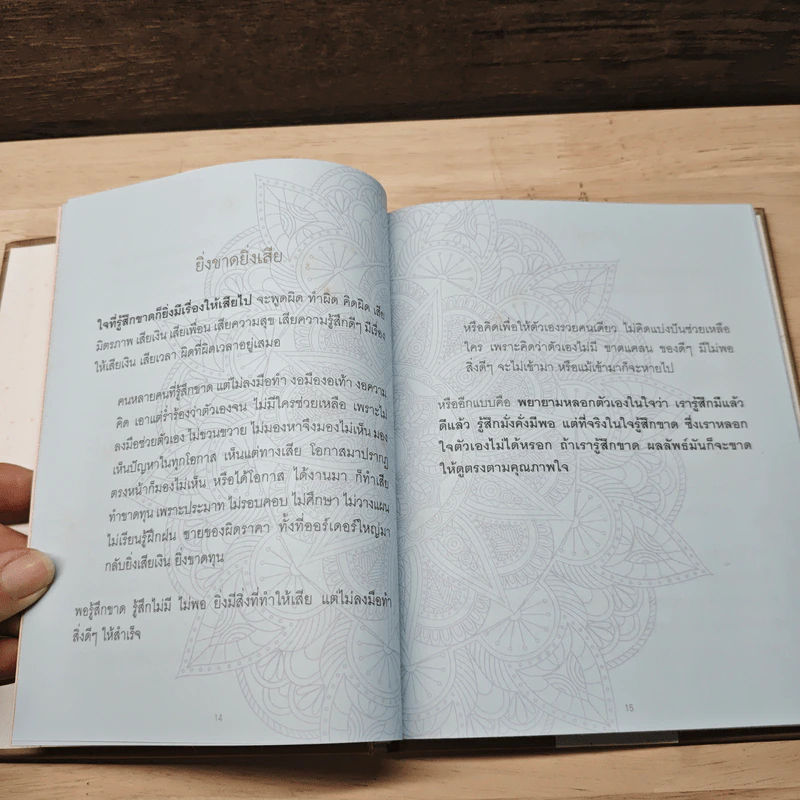 ยิ่งขาดยิ่งเสีย
ใจที่รู้สึกขาดก็ยิ่งมีเรื่องให้เสียไป จะพูดผิด ทำผิด คิดผิด เสีย
มิตรภาพ เสียเงิน เสียเพื่อน เสียความสุข เสียความรู้สึกดีๆ มีเรื่อง
ให้เสียเงิน เสียเวลา ผิดที่ผิดเวลาอยู่เสมอ
คนหลายคนที่รู้สึกขาด แต่ไม่ลงมือทำ งอมืองอเท้า งอความ
คิด เอาแต่ร่ำร้องว่าตัวเองจน ไม่มีใครช่วยเหลือ เพราะไม่
ลงมือช่วยตัวเอง ไม่ขวนขวาย ไม่มองหาจึงมองไม่เห็น มอง
เห็นปัญหาในทุกโอกาส เห็นแต่ทางเสีย โอกาสมาปรากฏ
ตรงหน้าก็มองไม่เห็น หรือได้โอกาส ได้งานมา ก็ทำเสีย
ทำขาดทุน เพราะประมาท ไม่รอบคอบ ไม่ศึกษา ไม่วางแผน
ไม่เรียนรู้ฝึกฝน ขายของผิดราคา ทั้งที่ออร์เดอร์ใหญ่มา
กลับยิ่งเสียเงิน ยิ่งขาดทุน
พอรู้สึกขาด รู้สึกไม่มี ไม่พอ ยิ่งมีสิ่งที่ทำให้เสีย แต่ไม่ลงมือทำ
สิ่งดีๆ ให้สำเร็จ
14
หรือคิดเพื่อให้ตัวเองรวยคนเดียว ไม่คิดแบ่งปันช่วยเหลือ
ใคร เพราะคิดว่าตัวเองไม่มี ขาดแคลน ของดีๆ มีไม่พอ
สิ่งดีๆ จะไม่เข้ามา หรือแม้เข้ามาก็จะหายไป
หรืออีกแบบคือ พยายามหลอกตัวเองในใจว่า เรารู้สึกมีแล้ว
ดีแล้ว รู้สึกมั่งคั่งมีพอ แต่ที่จริงในใจรู้สึกขาด ซึ่งเราหลอก
ใจตัวเองไม่ได้หรอก ถ้าเรารู้สึกขาด ผลลัพธ์มันก็จะขาด
ให้ดูตรงตามคุณภาพใจ
15